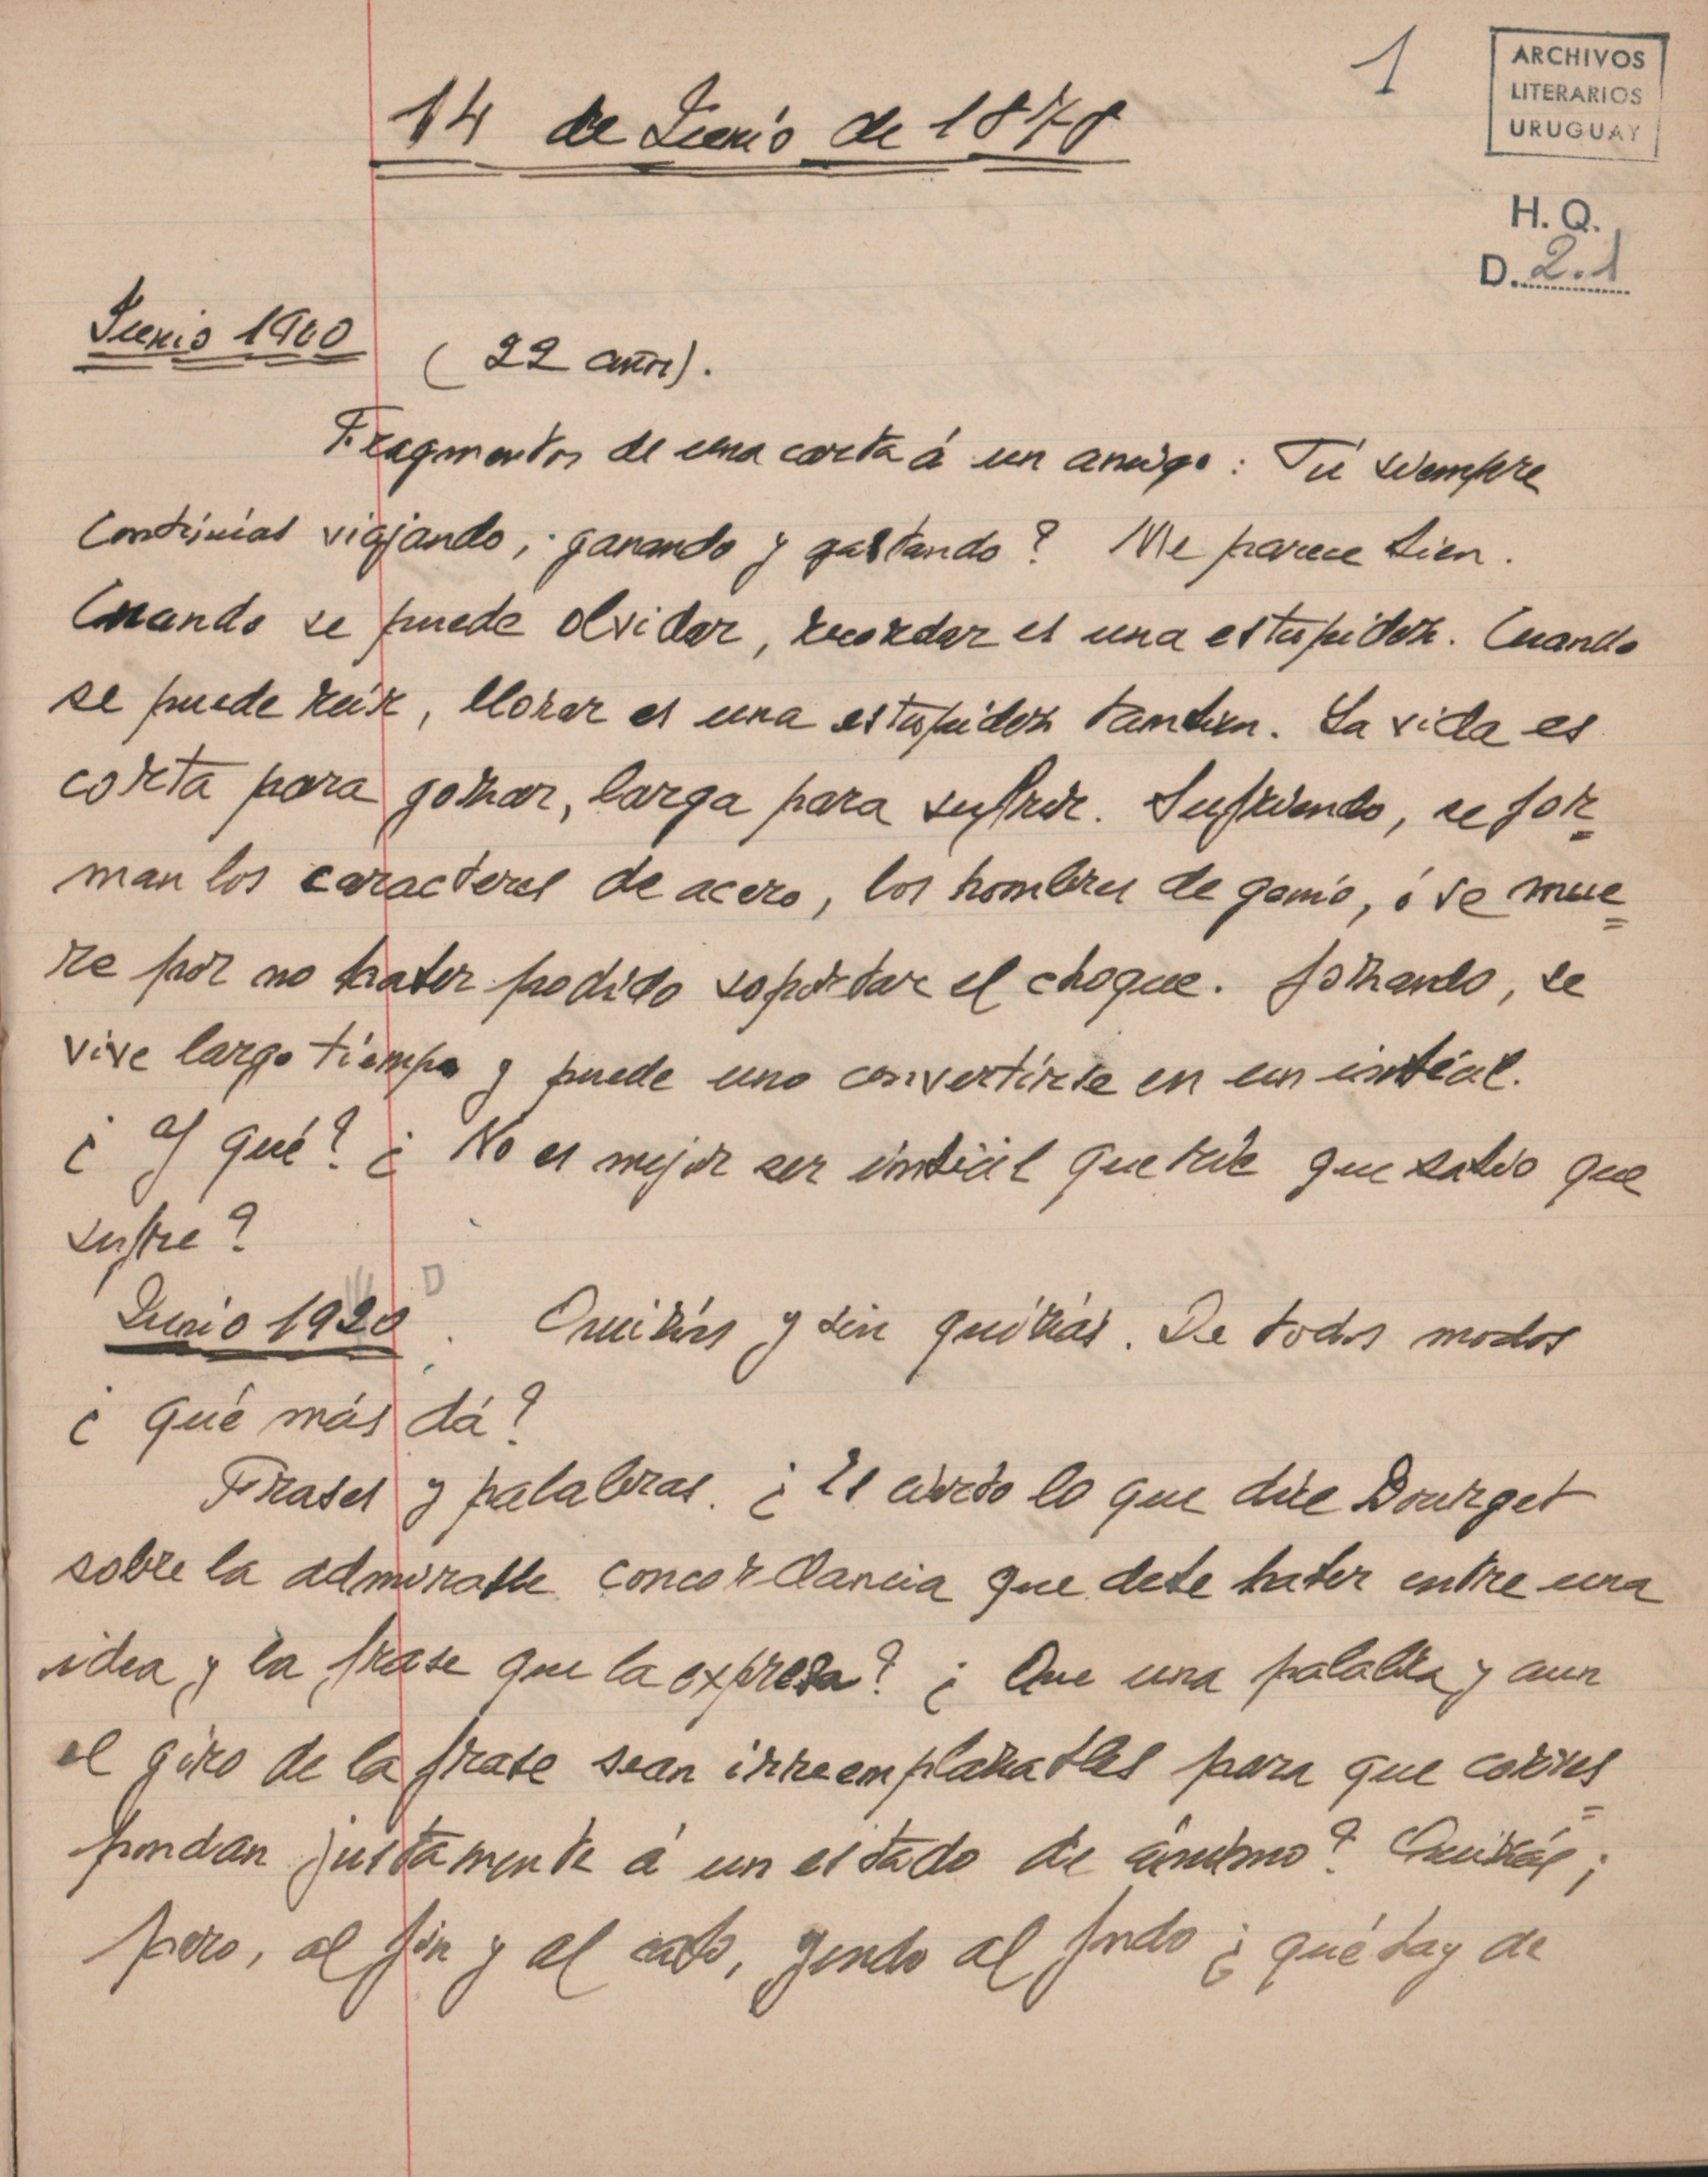 1
ARCHIVOS
LITERARIOS
URUGUAY
14 de Junio de 1878
H. Q.
D. 2.1
Junio 1900
(22 años).
Fragmentos de una carta á un amigo: Tú siempre
continúas viajando, ganando y gastando? Me parece bien.
Cuando se puede olvidar, recordar es una estupidez. Cuando
se puede reír, llorar es una estupidez tambien. La vida es
corta para gozar, larga para sufrir. Sufriendo, se for=
man los caracteres de acero, los hombres de genio, ó se mue=
re por no haber podido soportar el choque. Gozando, se
vive largo tiempo y puede uno convertirse en un imbécil.
¿Y qué? ¿No es mejor ser imbécil que ríe que sabio que
sufre?
Junio 1920. Quizás y sin quizás. De todos modos
¿qué más dá?
Frases y palabras. ¿Es cierto lo que dice Bourget
sobre la admirable concordancia que debe haber entre una
idea y la frase que la expresa? ¿Que una palabra y aun
el giro de la frase sean irreemplazables para que corres=
pondan justamente á un estado de ánimo? Quizás;
pero, al fin y al cabo, yendo al fondo ¿qué hay de